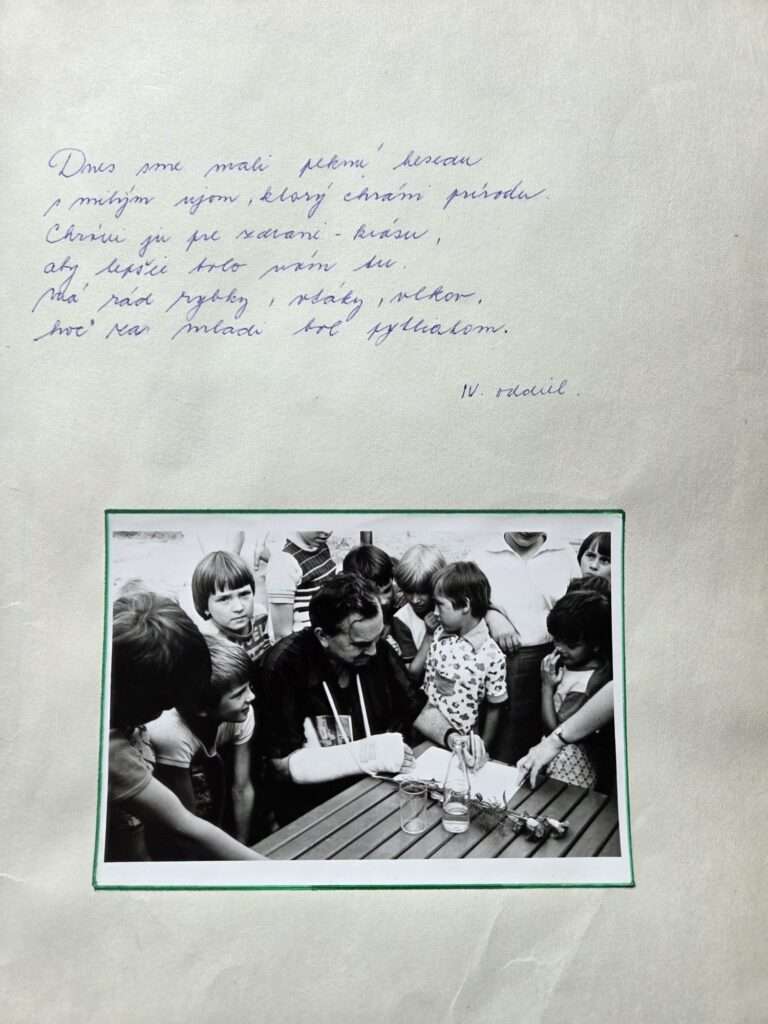 Dnes sme mali peknú besedu
s milým ujom, ktorý chráni prírodu.
Chráni ju pre zdravie - krásu,
aby lepšie bolo nám tu.
Má rád rybky, vtáky, vlkov,
hoc za mladi bol pytliakom.
IV. oddiel.